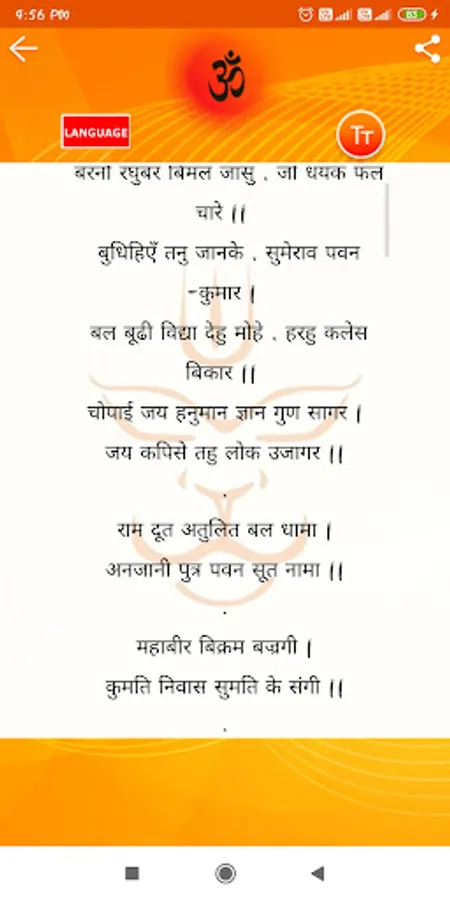 9:56 PM
83
LANGUAGE
TT
बरनो रघुबर बिमल जासु , जो धयक फल
चारे ||
बुधिहिएँ तनु जानके , सुमेराव पवन
-कुमार |
बल बूढी विद्या देहु मोहे , हरहु कलेस
बिकार ||
चोपाई जय हनुमान ज्ञान गुण सागर |
जय कपिसे तहु लोक उजागर ||
.
राम दूत अतुलित बल धामा |
अनजानी पुत्र पवन सूत नामा ||
.
महाबीर बिक्रम बज्रगी |
कुमति निवास सुमति के संगी ||
.